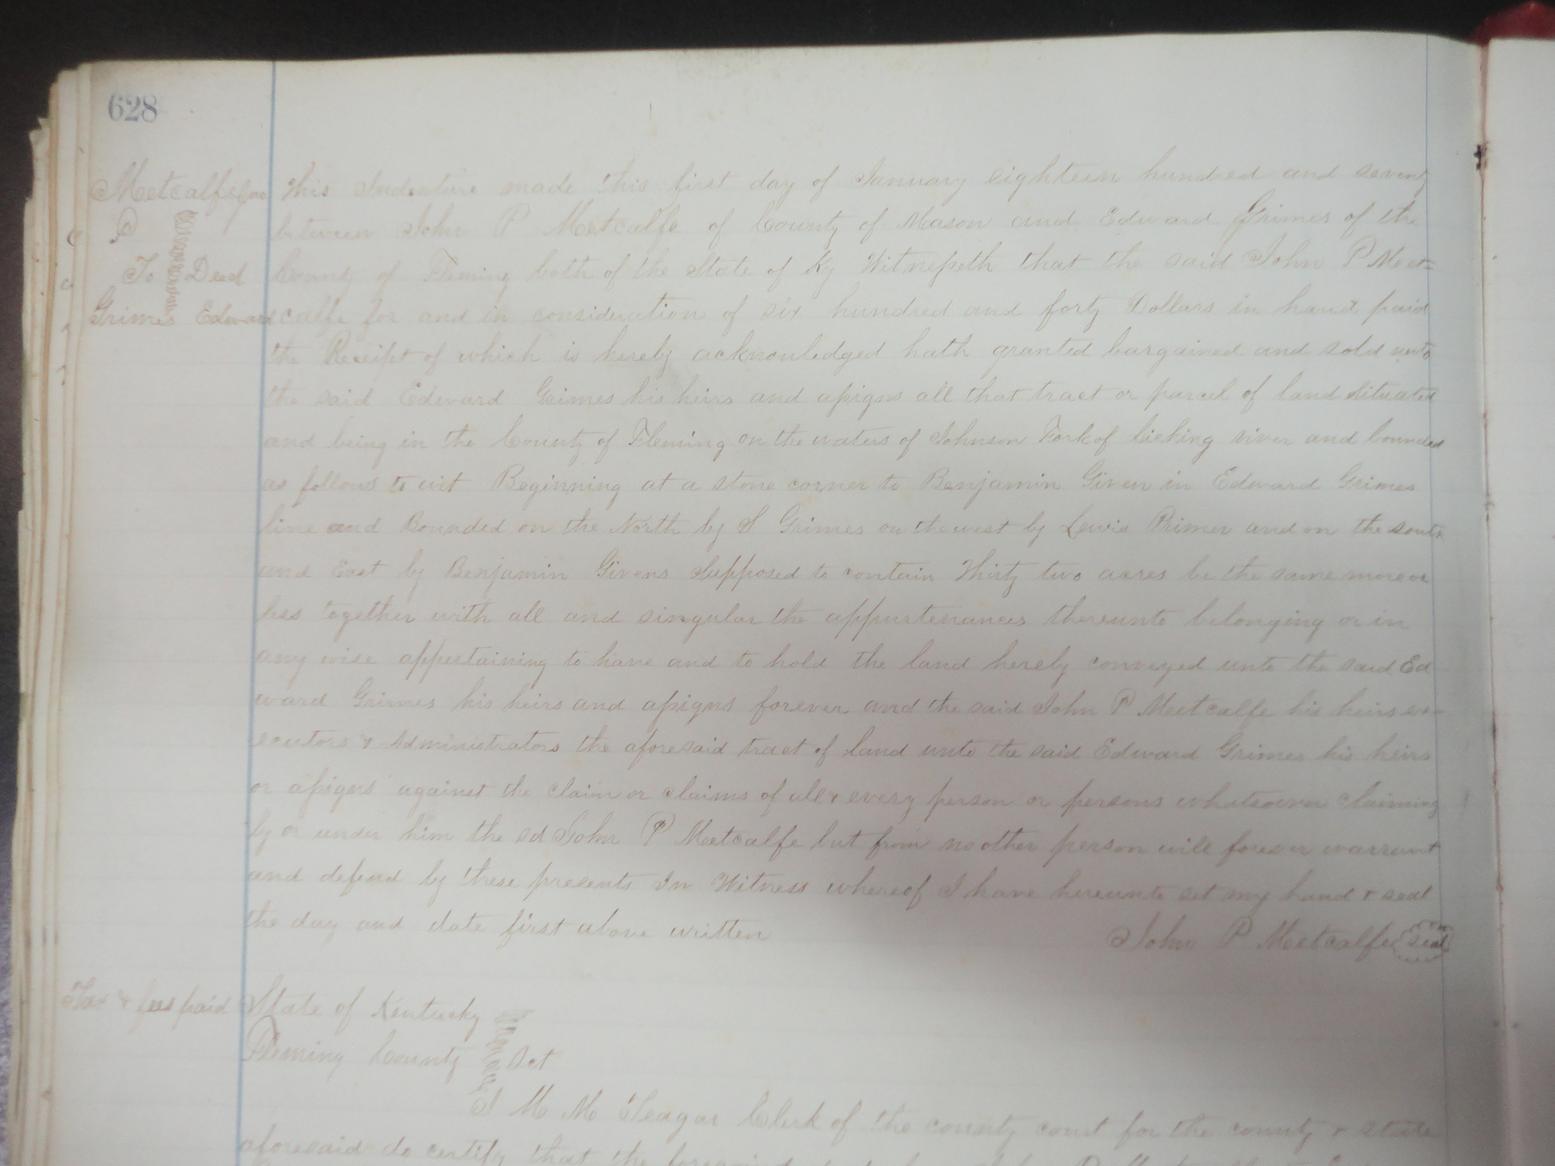 628
Metcalfe Jno
P
To Deed
Grimes Edward
This Indenture made this first day of January eighteen hundred and seventy
between John P Metcalfe of County of Mason and Edward Grimes of the
County of Fleming both of the State of Ky Witnesseth that the said John P Meet=
calfe for and in consideration of six hundred and forty Dollars in hand paid
the Receipt of which is hereby acknowledged hath granted bargained and sold unto
the said Edward Grimes his heirs and assigns all that tract or parcel of land situated
and being in the County of Fleming on the waters of Johnson Fork of Licking river and bounded
as follows to wit Beginning at a stone corner to Benjamin Given in Edward Grimes
line and Bounded on the North by S Grimes on the west by Lewis Primer and on the south
and East by Benjamin Givens Supposed to contain Thirty two acres be the same more or
less together with all and singular the appurtenances thereunto belonging or in
any wise appertaining to have and to hold the land hereby conveyed unto the said Ed
ward Grimes his heirs and assigns forever and the said John P Meetcalfe his heirs ex-
ecutors & Administrators the aforesaid tract of land unto the said Edward Grimes his heirs
or assigns against the claim or claims of all & every person or persons whatsoever claiming
by or under him the sd John P Meetcalfe but from no other person will forever warrant
and defend by these presents In Witness whereof I have hereunto set my hand & seal
the day and date first above written
John P Meetcalfe seal
Tax & fees paid
State of Kentucky
Fleming County Sct
I M M Teagar Clerk of the county court for the county & state
aforesaid do certify that the